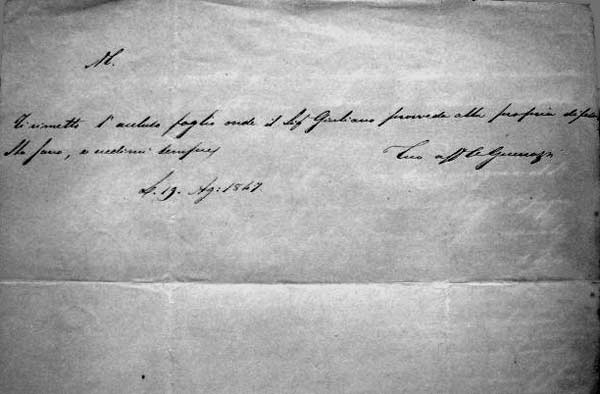 M.
Ti rimetto l'accluso foglio onde il Sigr Giuliano provveda alla propria difesa
Sta sano, e credimi sempre
Tuo affo Guerrazzi
L. 19. Ag: 1847